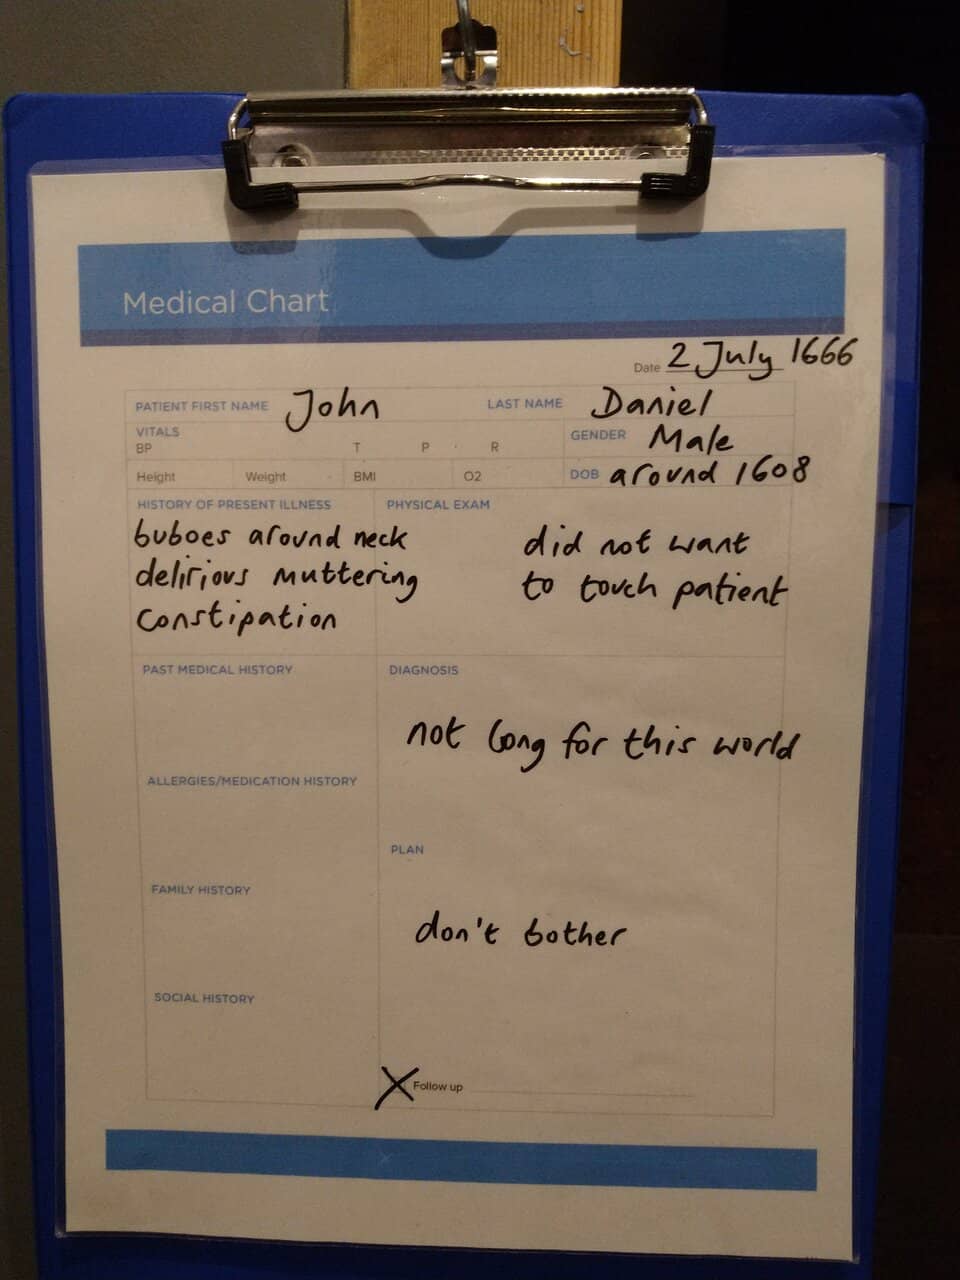 Medical Chart
Date 2 July 1666
PATIENT FIRST NAME John LAST NAME Daniel
VITALS
BP T P R GENDER Male
Height Weight BMI O2 DOB around 1608
HISTORY OF PRESENT ILLNESS
buboes around neck
delirious muttering
constipation
PHYSICAL EXAM
did not want
to touch patient
PAST MEDICAL HISTORY
DIAGNOSIS
not long for this world
ALLERGIES/MEDICATION HISTORY
PLAN
don't bother
FAMILY HISTORY
SOCIAL HISTORY
X Follow up